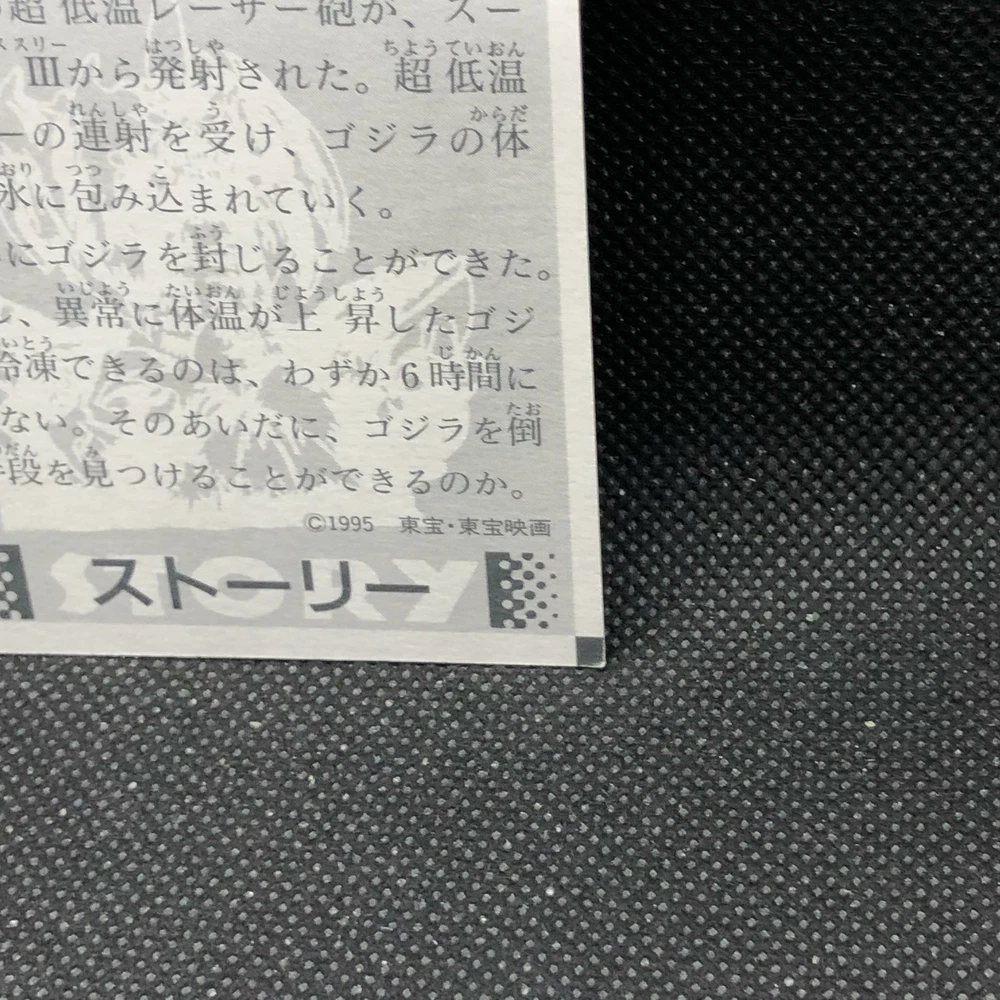 超低温レーザー砲が、スー
Ⅲから発射された。超低温
ーの連射を受け、ゴジラの体
氷に包み込まれていく。
にゴジラを封じることができた。
、異常に体温が上昇したゴジ
冷凍できるのは、わずか6時間に
ない。そのあいだに、ゴジラを倒
段を見つけることができるのか。
©1995 東宝・東宝映画
STORY
ストーリー